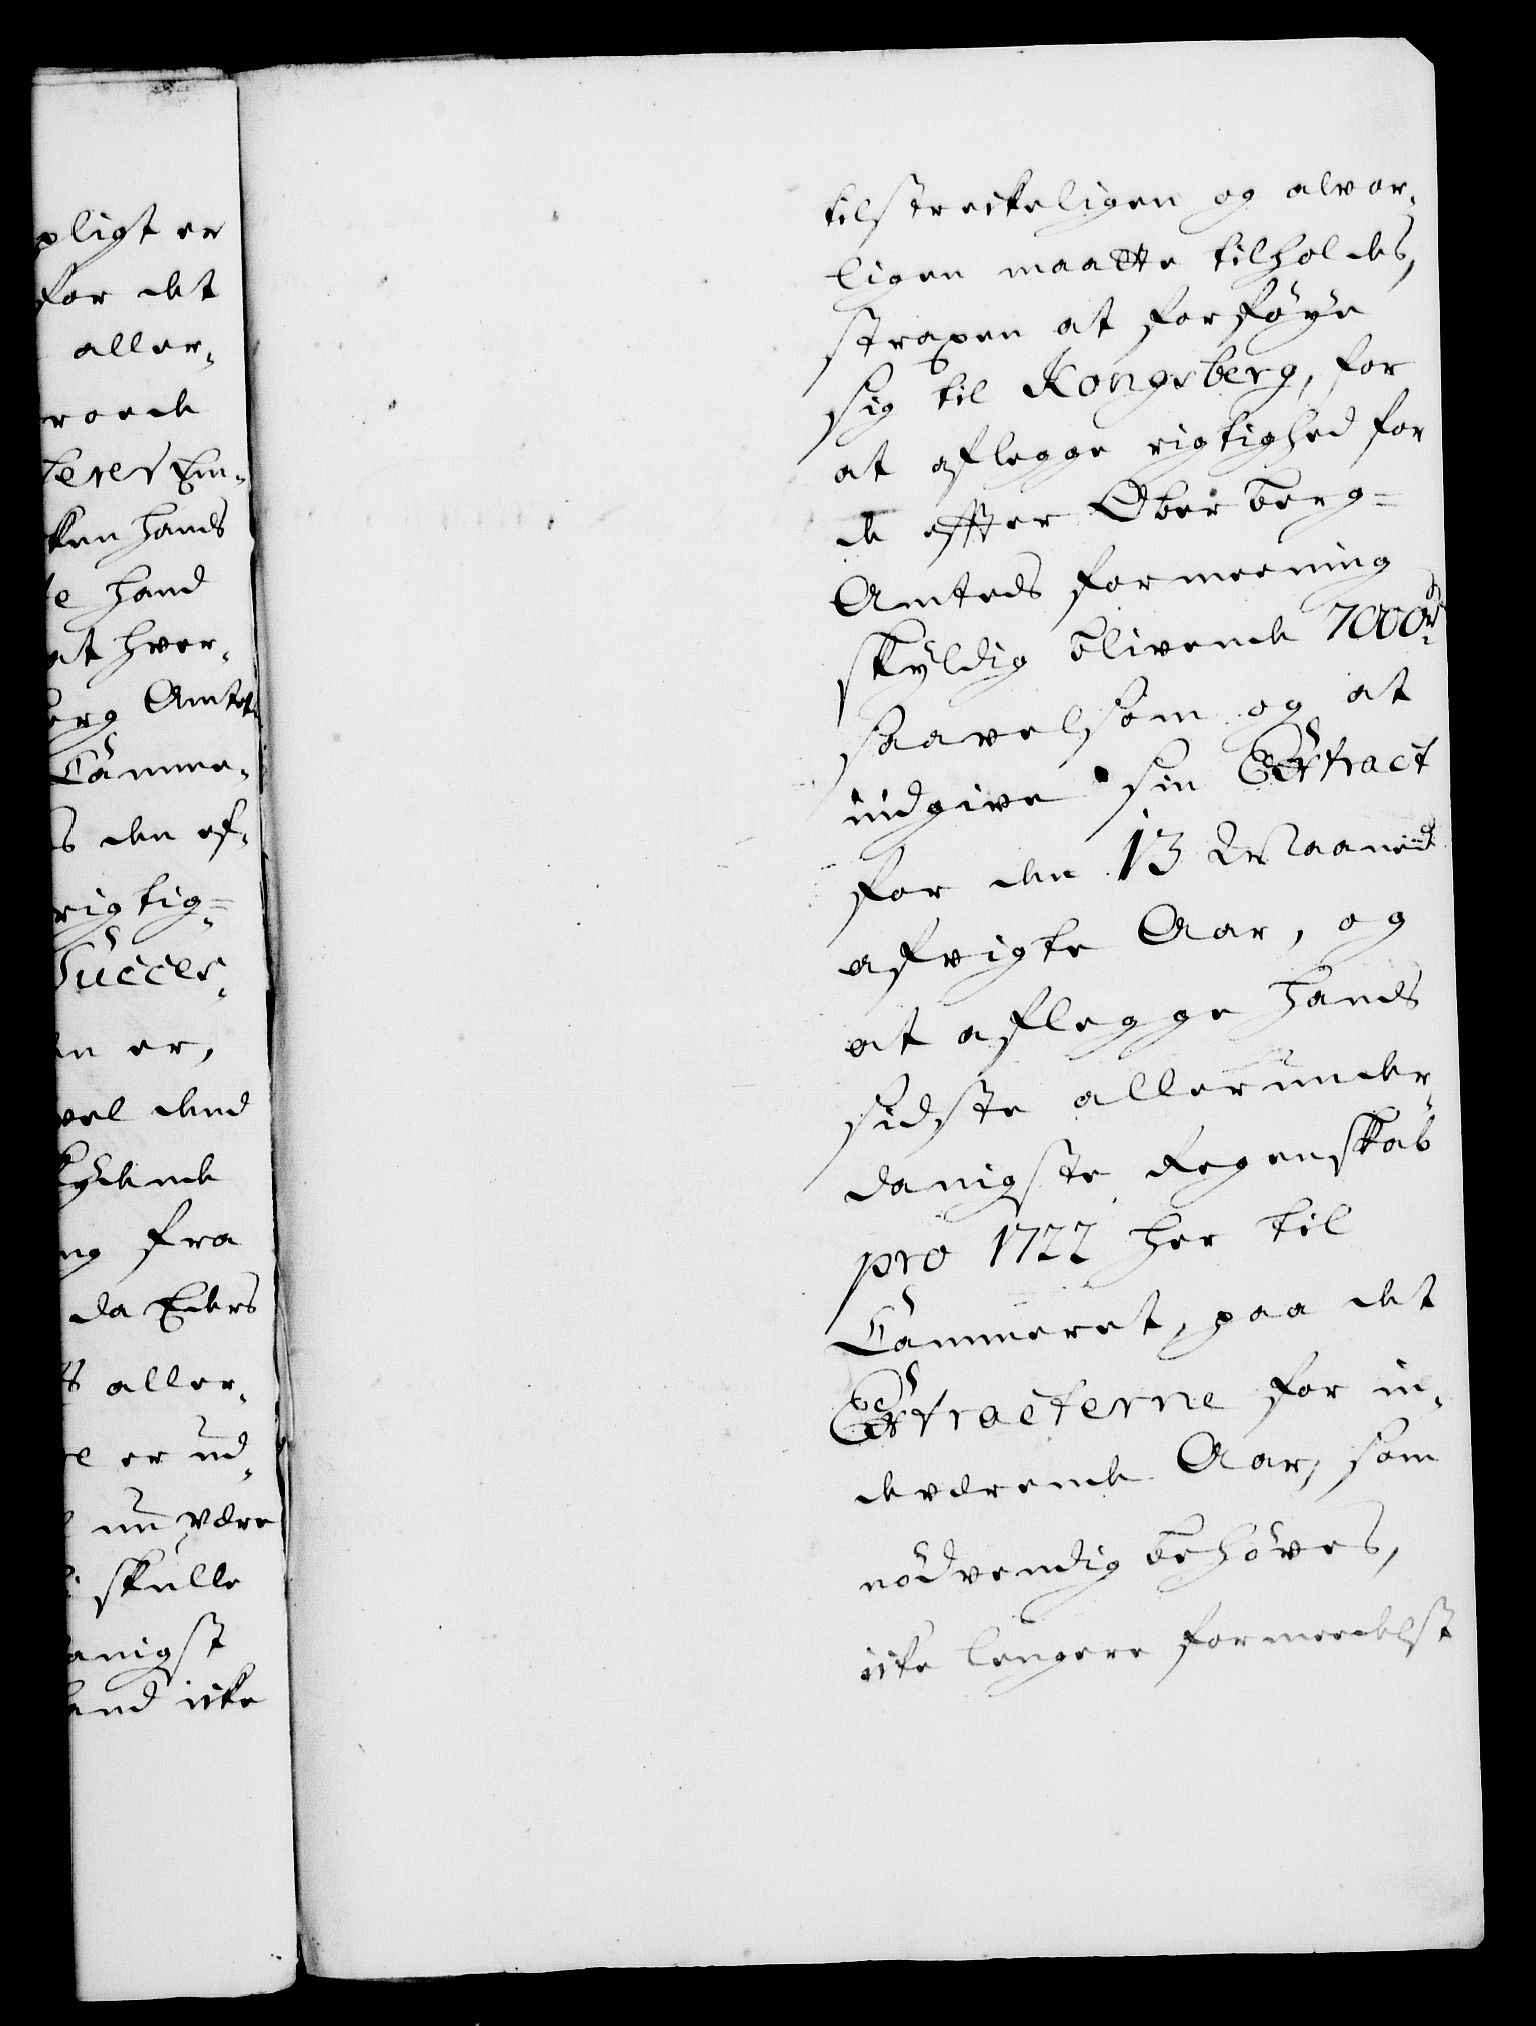 pligt er
for det
aller-
roede
teres Em-
ken hands
te hand
at hver-
erg Amtet
Camme-
s den af-
rigtig=
Succes-
en er,
vel dend
lydende
ng fra
da Eders
aller-
e er ud-
nu være
skulle
anigst
and icke
tilstreckeligen og alvor-
ligen maatte tilholdes,
straxen at forföye
sig til Kongsberg, for
at aflegge rigtighed for
de efter Ober berg=
Amtets formeening
skyldig blivende 7000 rd
saavelsom og at
indgive sin Extract
for den 13 Maanet
afvigte Aar, og
at aflegge hands
sidste allerunder-
danigste Regenskab
pro 1722 her til
Cammeret, paa det
Extracterne for in-
deværende Aar, som
nödvendig behöves,
icke lengere formedelst